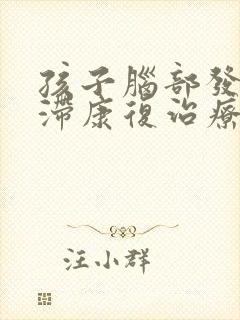 孩子腦部發
滯康復治療
汪小群